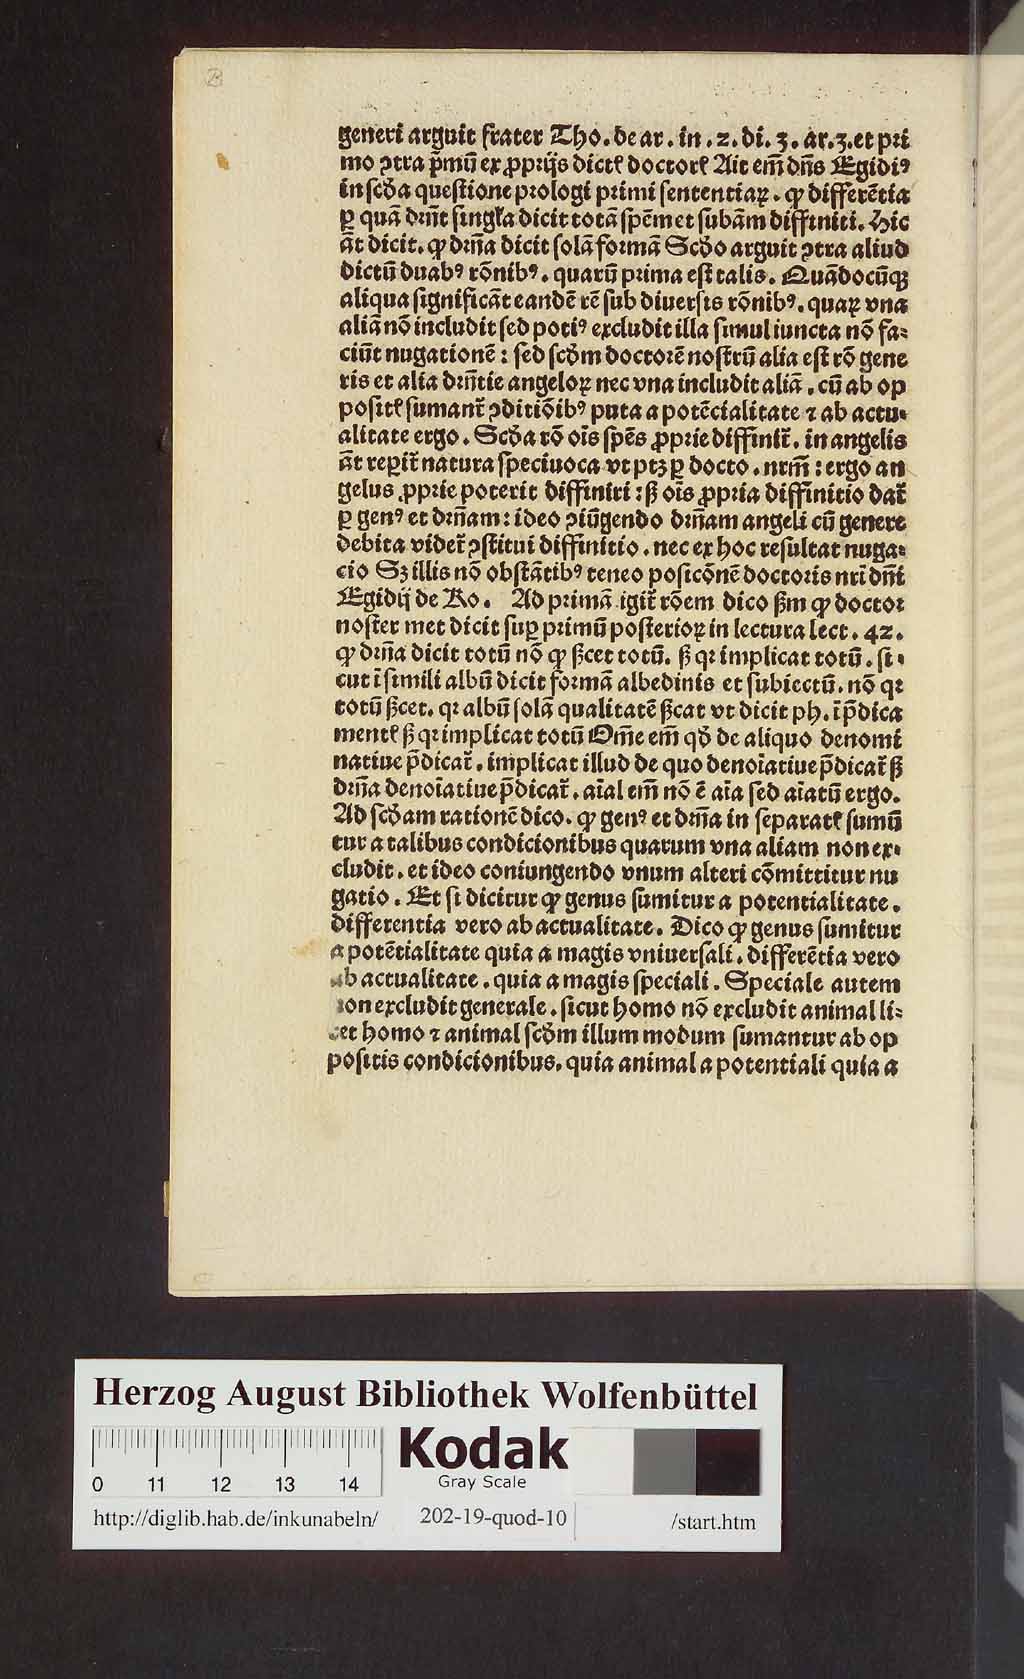 generi arguit frater Tho. de ar. in .2. di. 3. ar.3. et pri
mo ꝯtra p̄mū ex ꝓprijs dictꝭ doctorꝭ Ait em̄ dn̄s Egidiꝰ
in scḋa questione prologi primi sententiaꝝ. ꝙ differētia
ꝑ quā drn̄t singl̓a dicit totā spēm et subam̄ diffiniti. Hic
āt dicit. ꝙ drn̄a dicit solā formā Scḋo arguit ꝯtra aliud
dictū duabꝰ rōnibꝰ. quarū prima est talis. Quādocūqꝫ
aliqua significāt eandē rē sub diuersis rōnibꝰ. quaꝝ vna
aliā nō includit sed potiꝰ excludit illa simul iuncta nō fa-
ciūt nugationē: sed scḋm doctorē nostrū alia est rō gene
ris et alia drn̄tie angeloꝝ nec vna includit aliā. cū ab op
positꝭ sumant̄ ꝯditiōibꝰ puta a potēcialitate ⁊ ab actu-
alitate ergo. Scḋa rō oīs spēs ꝓprie diffinit̄. in angelis
āt reꝑit̄ natura speciuoca vt ptꝫ ꝑ docto. nrm̄: ergo an
gelus ꝓprie poterit diffiniri: ß oīs ꝓpria diffinitio dat̄
ꝑ genꝰ et drn̄am: ideo ꝯiūgendo drn̄am angeli cū genere
debita videt̄ ꝯstitui diffinitio. nec ex hoc resultat nuga-
cio Sꝫ illis nō obstātibꝰ teneo posicōnē doctoris nri dn̄i
Egidij de Ro. Ad primā igit̄ rōem dico ßm ꝙ doctor
noster met dicit suꝑ primū posterioꝝ in lectura lect. 42.
ꝙ drn̄a dicit totū nō ꝙ ßcet totū. ß qr implicat totū. si-
cut ī simili albū dicit formā albedinis et subiectū. nō qr
totū ßcet. qr albū solā qualitatē ßcat vt dicit ph. ī p̄dica
mentꝭ ß qr implicat totū Om̄e em̄ qḋ de aliquo denomi
natiue p̄dicat̄. implicat illud de quo denoīatiue p̄dicat̄ ß
drn̄a denoīatiue p̄dicat̄. aīal em̄ nō ē aīa sed aīatū ergo.
Ad scḋam rationē dico. ꝙ genꝰ et drn̄a in separatꝭ sumū
tur a talibus condicionibus quarum vna aliam non ex-
cludit. et ideo coniungendo vnum alteri cōmittitur nu
gatio. Et si dicitur ꝙ genus sumitur a potentialitate.
differentia vero ab actualitate. Dico ꝙ genus sumitur
a potētialitate quia a magis vniuersali. differētia vero
ab actualitate. quia a magis speciali. Speciale autem
non excludit generale. sicut homo nō excludit animal li-
cet homo ⁊ animal scḋm illum modum sumantur ab op
positis condicionibus. quia animal a potentiali quia a
Herzog August Bibliothek Wolfenbüttel
Kodak
Gray Scale
0 11 12 13 14
http://diglib.hab.de/inkunabeln/ 202-19-quod-10 /start.htm